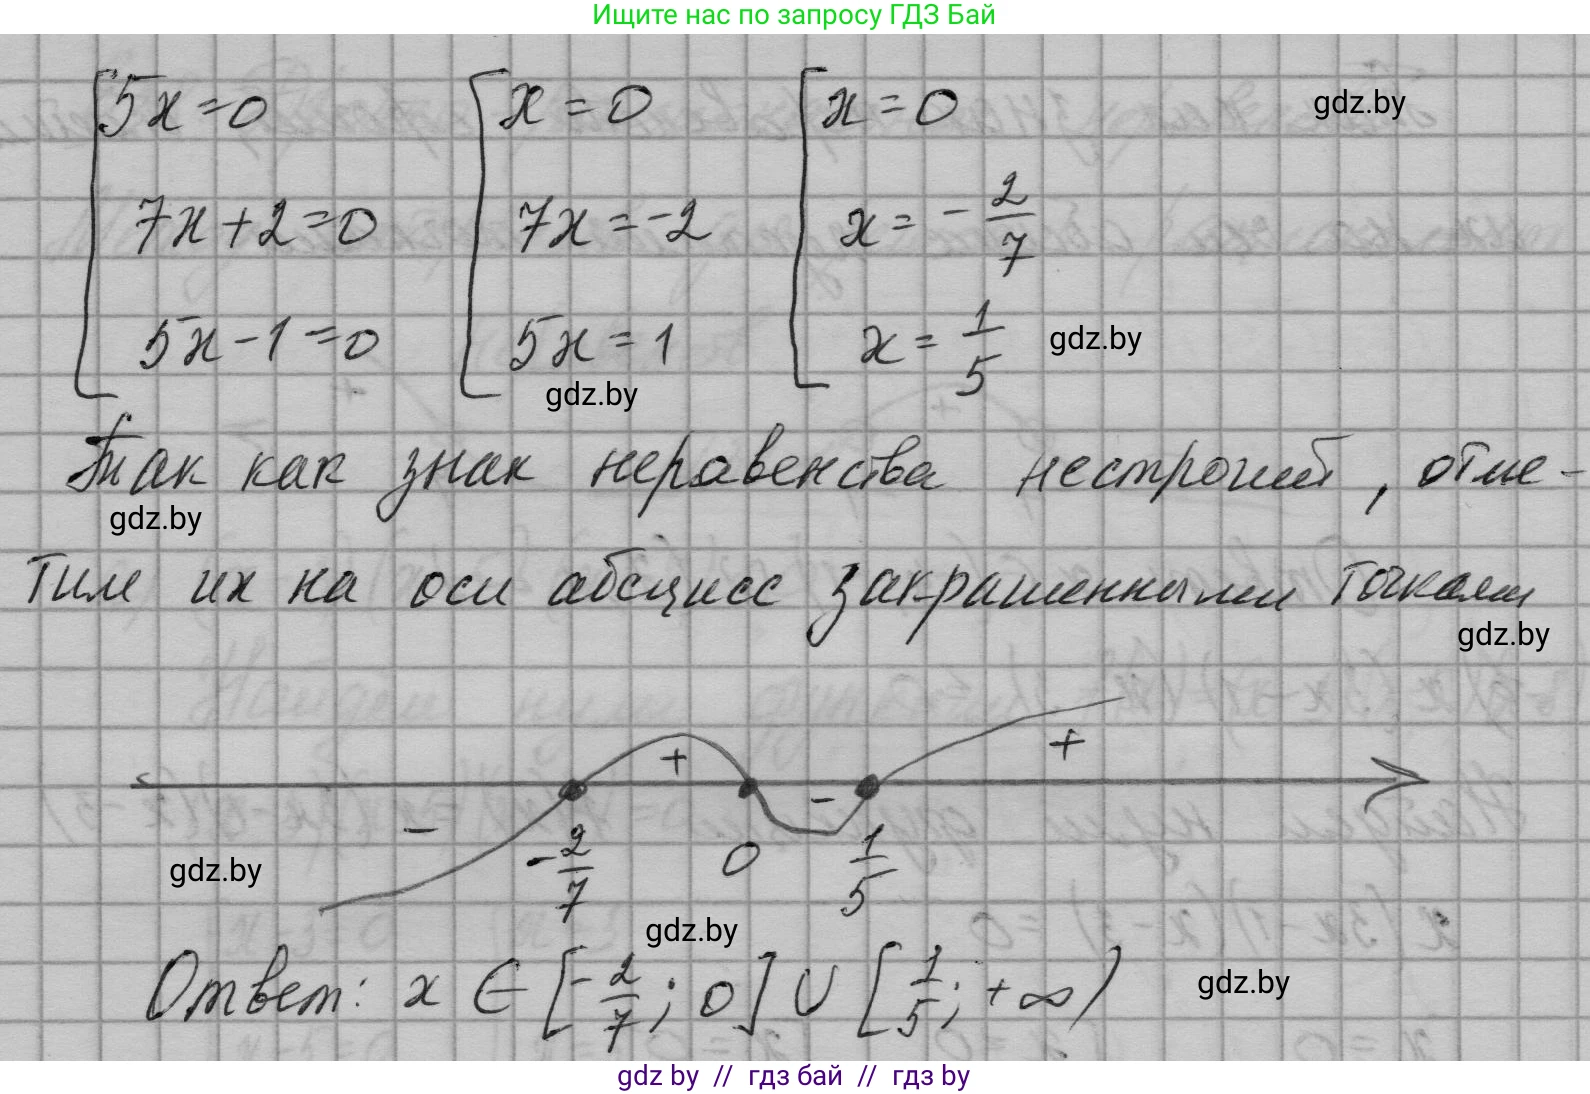 Ищите нас по запросу ГДЗ Бай
5x=0 x=0 x=0 gdz.by
7x+2=0 7x=-2 x=-2/7
5x-1=0 5x=1 x=1/5 gdz.by
gdz.by
Так как знак неравенства нестрогий, отме-
gdz.by
тим их на оси абсцисс закрашенными точками
gdz.by
+ +
- -
-2/7 0 1/5
gdz.by
gdz.by
Ответ: x ∈ [-2/7; 0] ∪ [1/5; +∞) gdz.by
gdz by // гдз бай // гдз by